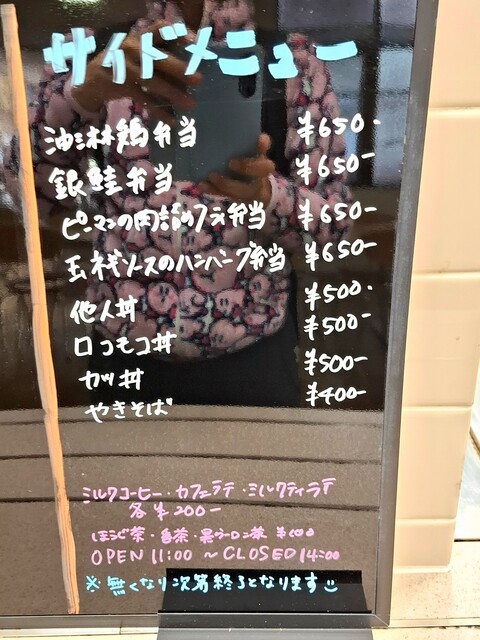 サイドメニュー
油淋鶏弁当 ¥650-
銀鮭弁当 ¥650-
ピーマンの肉詰めフライ弁当 ¥650-
玉ネギソースのハンバーグ弁当 ¥650-
他人丼 ¥500-
ロコモコ丼 ¥500-
カツ丼 ¥500-
やきそば ¥400-
ミルクコーヒー・カフェラテ・ミルクティラテ
各¥200-
ほうじ茶・番茶・黒ウーロン茶 ¥100
OPEN 11:00 ~CLOSED 14:00
※無くなり次第終了となります